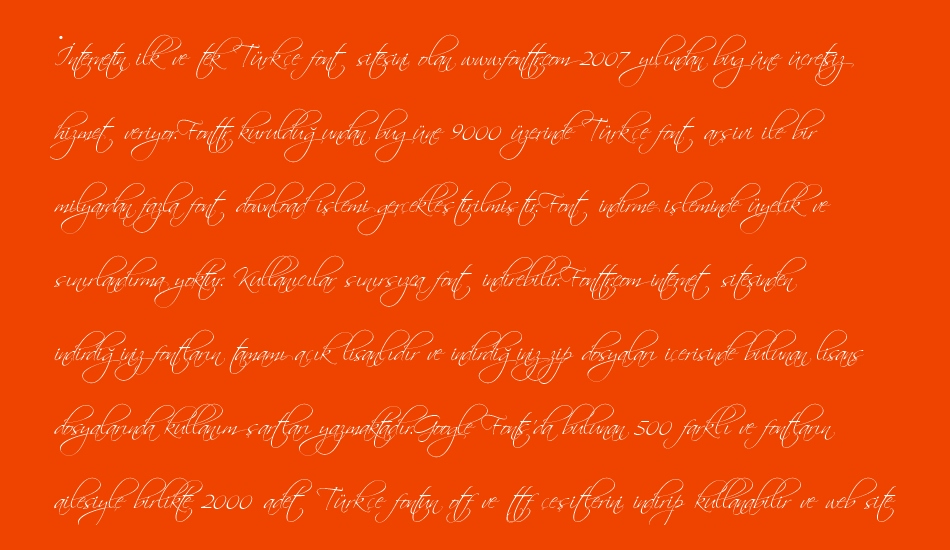 İnternetin ilk ve tek Türkçe font sitesini olan www.fonttr.com 2007 yılından bugüne ücretsiz
hizmet veriyor.Fonttr kurulduğundan bugüne 9000 üzerinde Türkçe font arşivi ile bir
milyardan fazla font download işlemi gerçekleştirilmiştir.Font indirme işleminde üyelik ve
sınırlandırma yoktur. Kullanıcılar sınırsızca font indirebilir.Fonttr.com internet sitesinden
indirdiğiniz fontların tamamı açık lisanlıdır ve indirdiğiniz zip dosyaları içerisinde bulunan lisans
dosyalarında kullanım şartları yazmaktadır.Google Fonts'da bulunan 500 farklı ve fontların
ailesiyle birlikte 2000 adet Türkçe fontun otf ve ttf çeşitlerini indirip kullanabilir ve web site